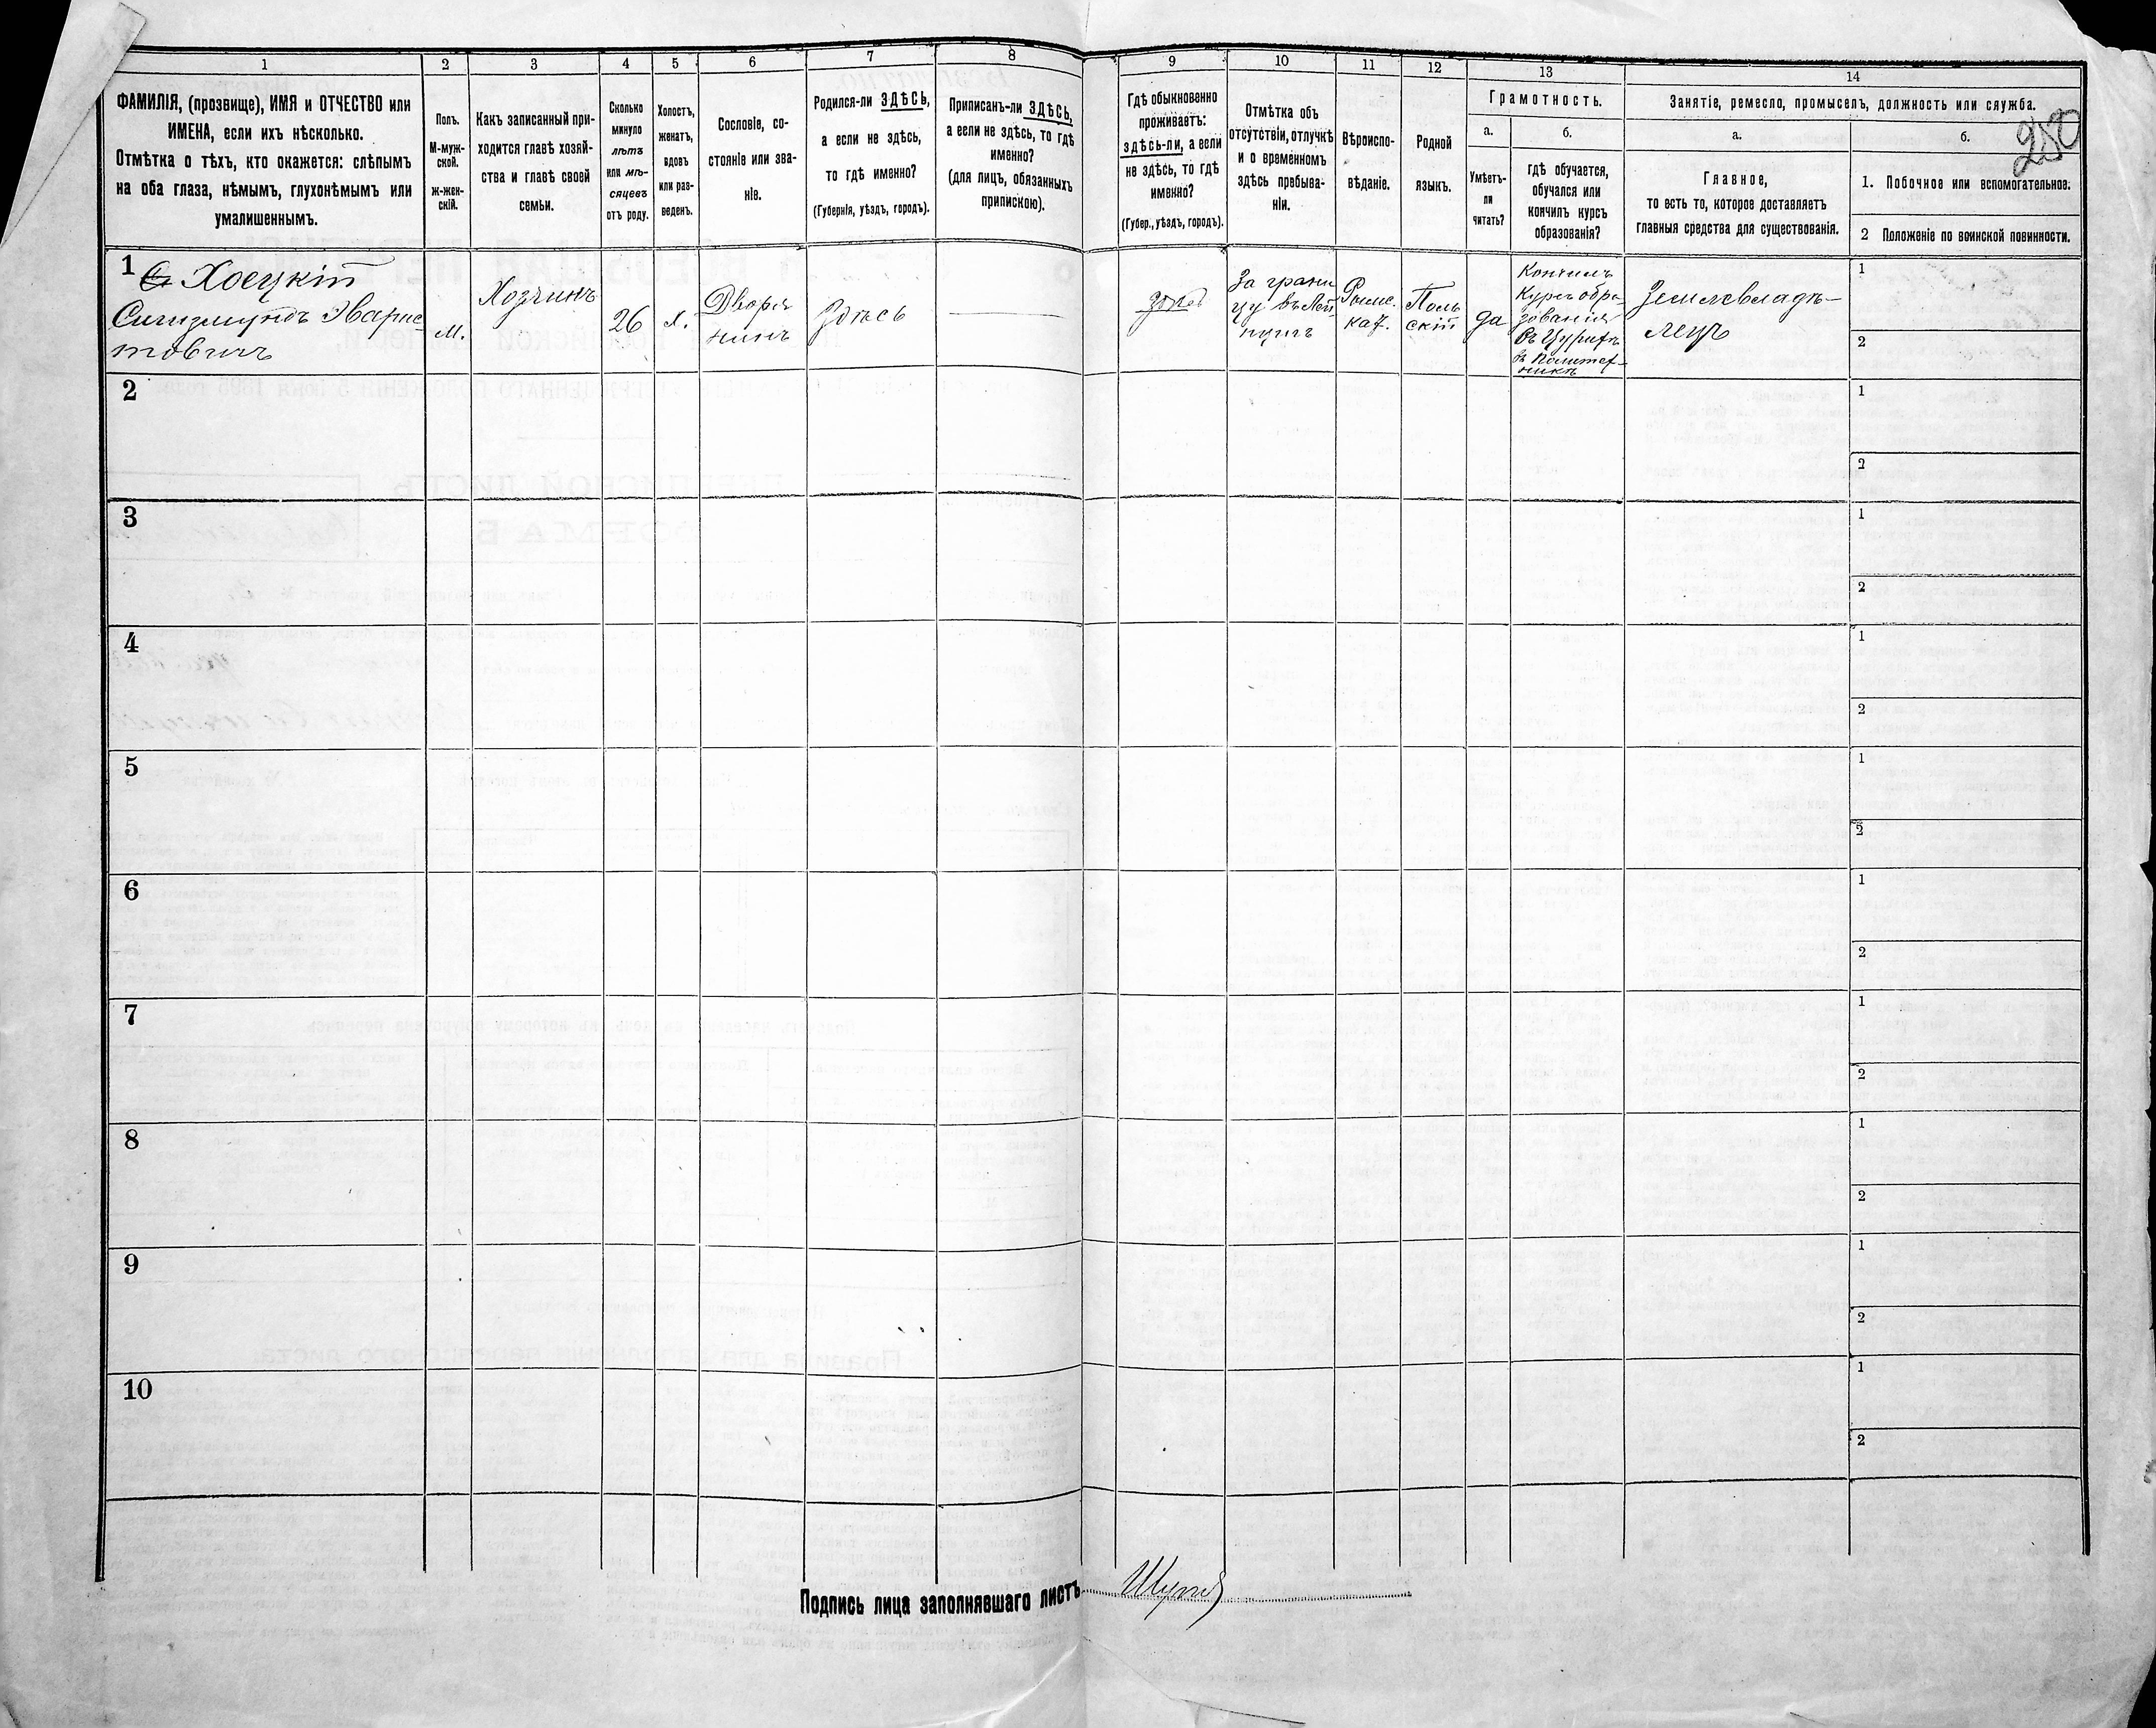 1 2 3 4 5 6 7 8 9 10 11 12 13 14
ФАМИЛІЯ, (прозвище), ИМЯ и ОТЧЕСТВО или
ИМЕНА, если ихъ нѣсколько.
Отмѣтка о тѣхъ, кто окажется: слѣпымъ
на оба глаза, нѣмымъ, глухонѣмымъ или
умалишеннымъ.
Полъ.
М-муж-
ской.
ж-жен-
скій.
Какъ записанный при-
ходится главѣ хозяй-
ства и главѣ своей
семьи.
Сколько
минуло
лѣтъ
или мѣ-
сяцевъ
отъ роду.
Холостъ,
женатъ,
вдовъ
или раз-
веденъ.
Сословіе, со-
стояніе или зва-
ніе.
Родился-ли ЗДѢСЬ,
а если не здѣсь,
то гдѣ именно?
(Губернія, уѣздъ, городъ).
Приписанъ-ли ЗДѢСЬ,
а если не здѣсь, то гдѣ
именно?
(для лицъ, обязанныхъ
припискою).
Гдѣ обыкновенно
проживаетъ:
здѣсь-ли, а если
не здѣсь, то гдѣ
именно?
(Губер., уѣздъ, городъ).
Отмѣтка объ
отсутствіи, отлучкѣ
и о временномъ
здѣсь пребыва-
ніи.
Вѣроиспо-
вѣданіе.
Родной
языкъ.
Грамотность.
а.
Умѣетъ-
ли
читать?
б.
гдѣ обучается,
обучался или
кончилъ курсъ
образованія?
Занятіе, ремесло, промыселъ, должность или служба.
а.
Главное,
то есть то, которое доставляетъ
главныя средства для существованія.
б.
250
1. Побочное или вспомогательное.
2 Положеніе по воинской повинности.
1
Хоецкій
Сигизмундъ Эварис
товичъ
м.
Хозяинъ
26
х.
Дворя
нинъ
Здѣсь
здѣсь
За грани
цу въ Лей
пцигъ
Римс.
кат.
Поль
скій
да
Кончилъ
Курсъ обра
зованія
Въ Цурихѣ
въ Политех-
никѣ
Землевладѣ-
лецъ
1
2
2
1
2
3
1
2
4
1
2
5
1
2
6
1
2
7
1
2
8
1
2
9
1
2
10
1
2
Подпись лица заполнявшаго листъ